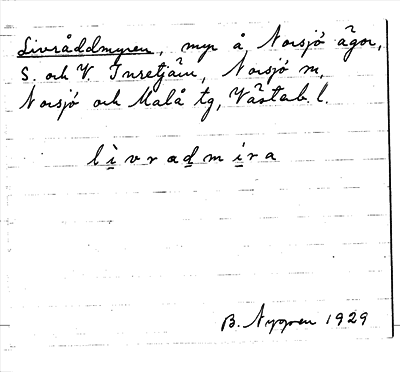 Livråddmyren, myr å Norsjö ägor,
S. och V. Inretjärn, Norsjö sn,
Norsjö och Malå tg, Västerb. l.
lìvradmira
B. Nygren 1929